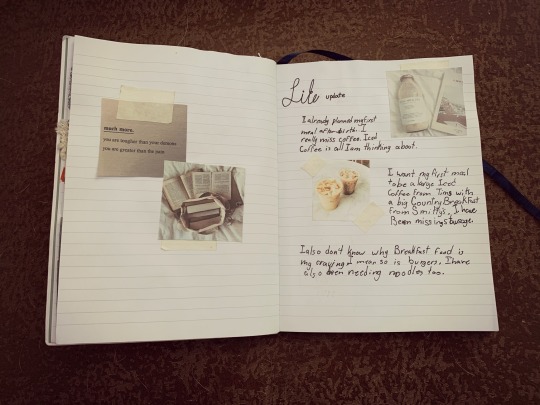 much more.
you are tougher than your demons
you are greater than the pain
Life update
I already planned my first
meal after birth. I
really miss coffee. Iced
Coffee is all I am thinking about.
I want my first meal
to be a large Iced
Coffee from Tims with
a big Country Breakfast
from Smitty's. I have
Been missing Sausage.
I also don't know why Breakfast food is
my craving I mean so is burgers. I have
also been needing noodles too.